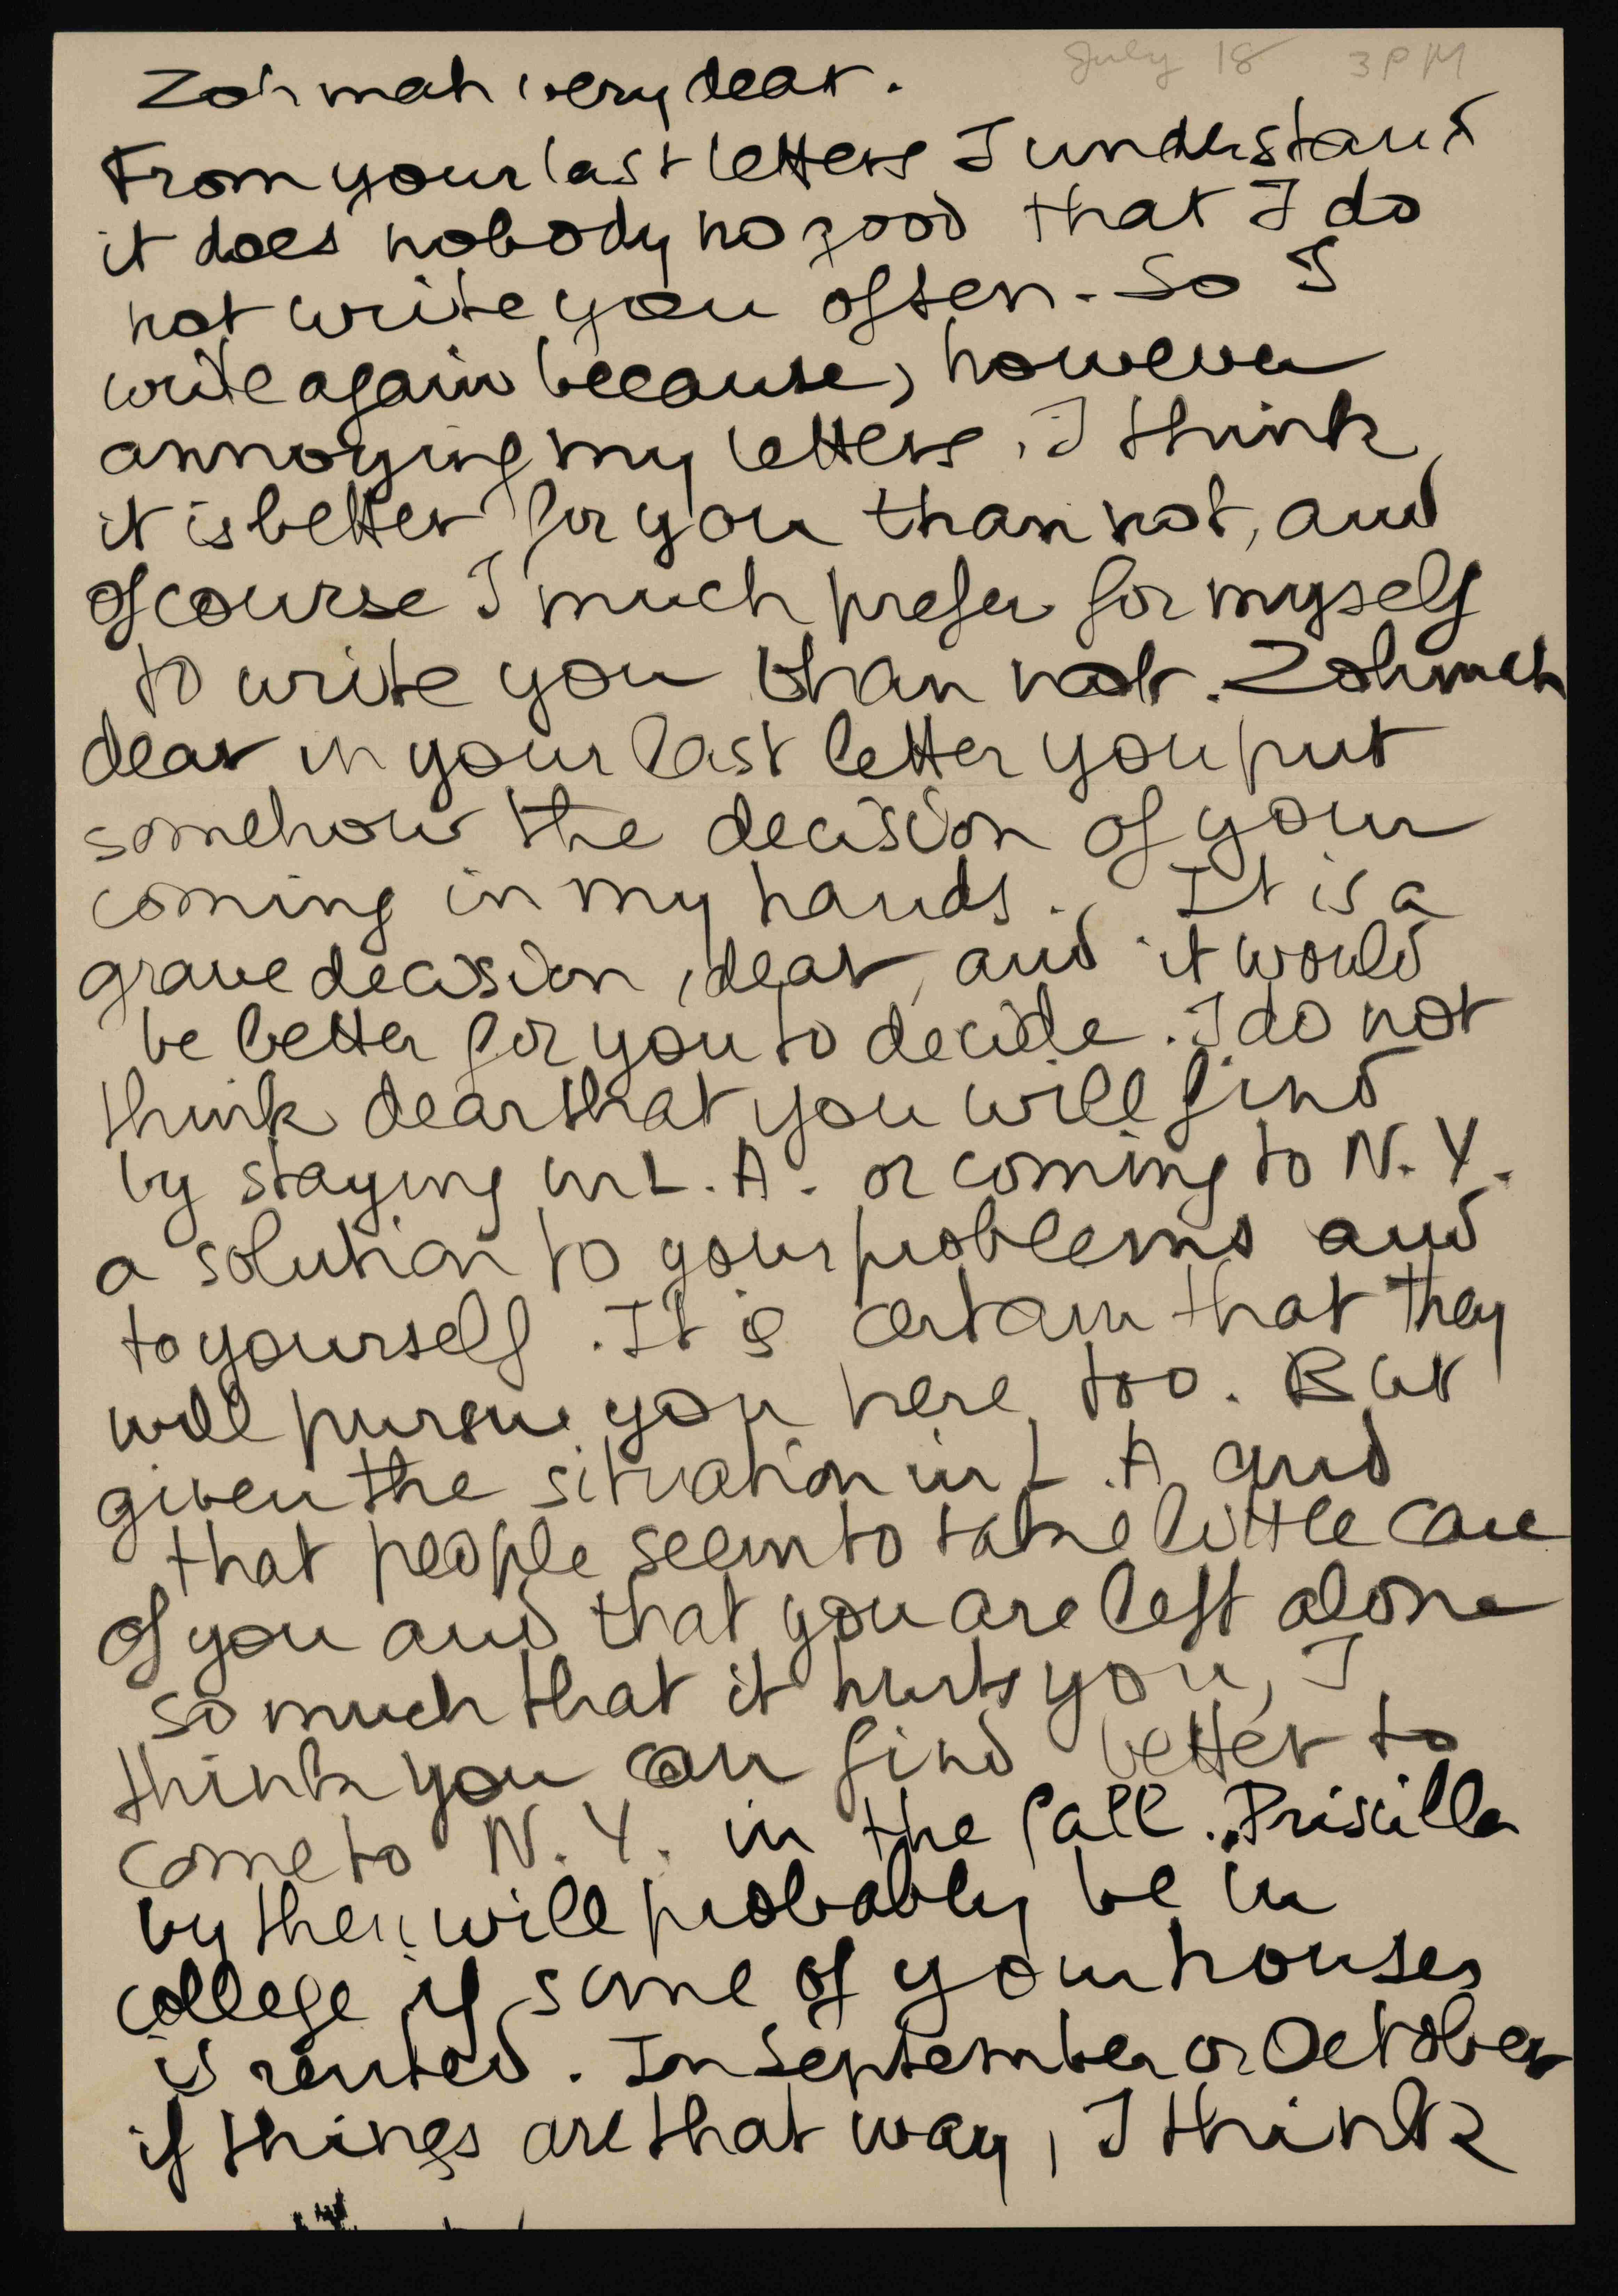 July 18 3 PM
Zohmah very dear.
From your last letters I understand
it does nobody no good that I do
not write you often. So I
write again because, however
annoying my letters, I think
it is better for you than not, and
of course I much prefer for myself
to write you than not. Zohmah
dear in your last letter you put
somehow the decision of your
coming in my hands. It is a
grave decision, dear, and it would
be better for you to decide. I do not
think dear that you will find
by staying in L.A. or coming to N.Y.
a solution to your problems and
to yourself. It is certain that they
will pursue you here too. But
given the situation in L.A. and
that people seem to take little care
of you and that you are left alone
so much that it hurts you, I
think you can find better to
come to N.Y. in the fall. Priscilla
by then will probably be in
college if some of your houses
is rented. In September or October
if things are that way, I think